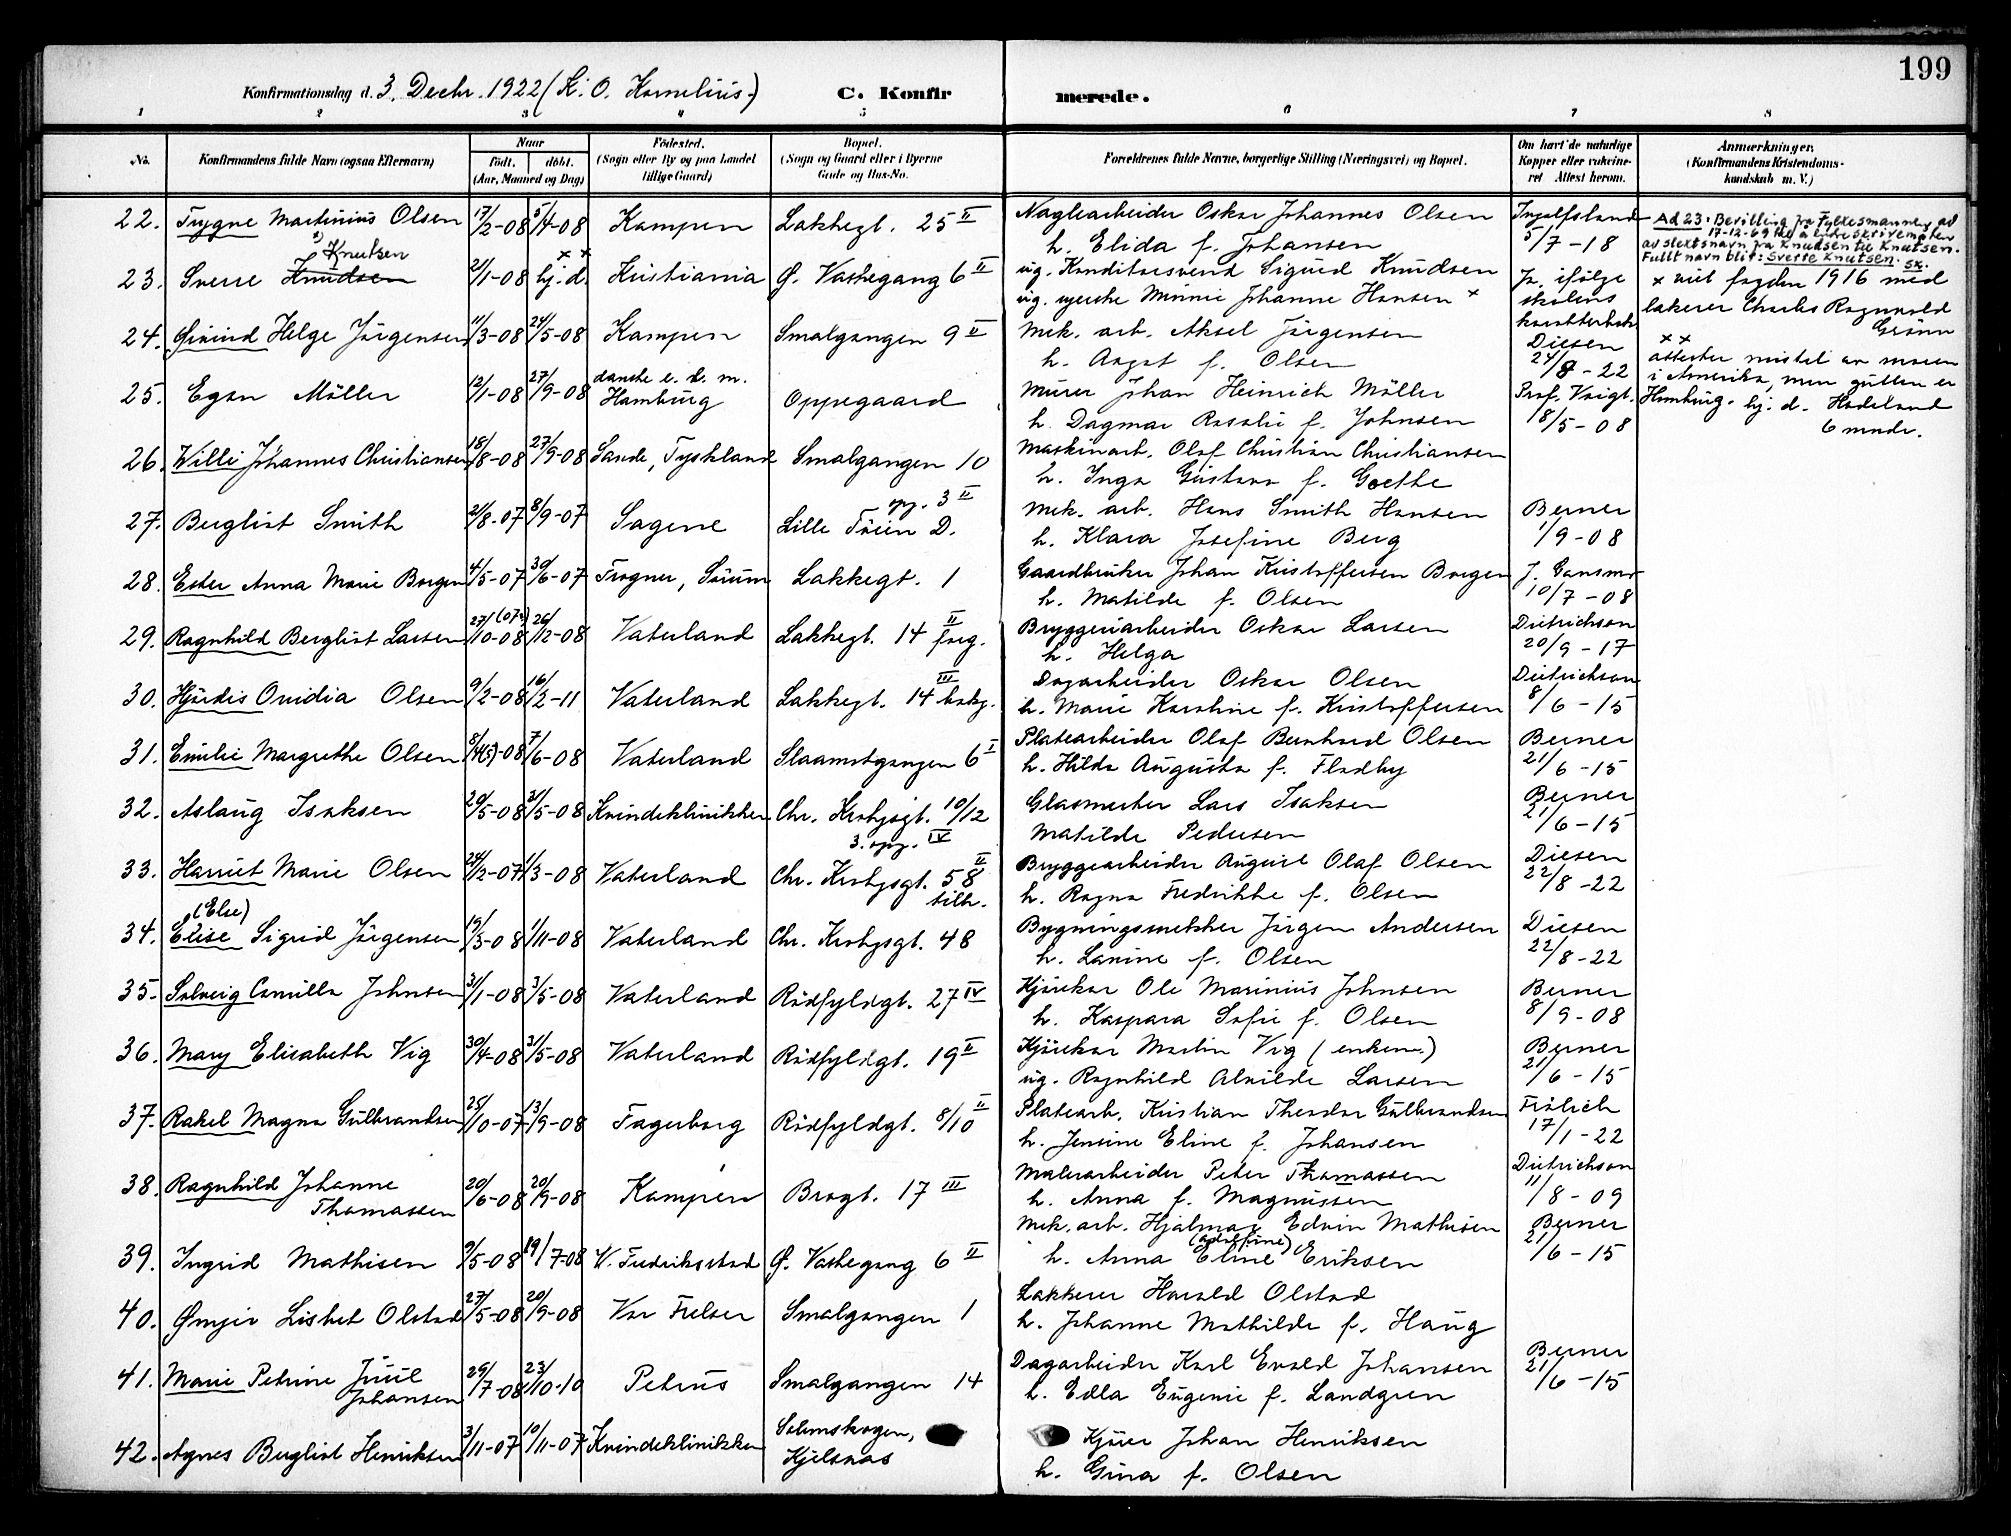 199
Konfirmationsdag d. 3. Decbr. 1922 (K. O. Kornelius.) C. Konfirmerede.
1 2 3 4 5 6 7 8
No. Konfirmandens fulde Navn (ogsaa Efternavn) Naar født. døbt. (Aar, Maaned og Dag) Fødested. (Sogn eller By og paa Landet tillige Gaard) Bopæl. (Sogn og Gaard eller i Byerne Gade og Hus-No. Forældrenes fulde Navne, borgerlige Stilling (Næringsvei) og Bopæl. Om havt de naturlige Kopper eller vakcineret Attest herom. Anmærkninger. (Konfirmandens Kristendomskundskab m. V.)
22. Trygve Martinius Olsen 17/2-08 5/4-08 Kampen Lakkegt. 25 II Naglearbeider Oskar Johannes Olsen
h. Elida f. Johansen 5/7-18
Ad 23: Bevilling fra Fylkesmannen
17-12-69 til å endre skrivemåten
av slektsnavn fra Knudsen til Knutsen.
Fullt navn blir: Sverre Knutsen. sx.
x) Knutsen
23. Sverre Knudsen 21/1-08 hj. d. x x Kristiania Ø. Vaskegang 6 II ug. Konditorsvend Sigurd Knudsen
ug. syerske Minnie Johanne Hansen x Ja ifølge skolens karakterbok
x viet fogden 1916 med
lakerer Charles Ragnvald
Grønn
x x
attester mistet av moren
i Amerika, men gutten er
hj. d. Hadeland
6 mndr.
24. Øivind Helge Jörgensen 11/3-08 24/5-08 Kampen Smalgangen 9 II Mek. arb. Aksel Jörgensen Diesen
h. Aagot f. Olsen 24/8-22
25. Egon Möller 12/1-08 27/9-08 danske e. d. m. Hamburg Oppegaard Murer Johan Heinrich Möller Prof. Voigt. Hamburg.
h. Dagmar Rosalie f. Johnsen 18/5-08
26. Willi Johannes Christiansen 18/8-08 27/9-08 Sande, Tyskland Smalgangen 10 Maskinarb. Olaf Christian Christiansen
h. Inga Gustava f. Goethe
27. Bergliot Smith 21/8-07 8/9-07 Sagene Lille Töien D. opg. 3 II Mek. arb. Hans Smith Hansen Berner
h. Klara Josefine Berg 1/9-08
28. Ester Anna Marie Borgen 4/5-07 30/6-07 Frogner, Sörum Lakkegt. 1 Gaardbruker Johan Kristoffersen Borgen J. Gansmo
h. Matilde f. Olsen 10/7-08
29. Ragnhild Bergliot Larsen 27/10-08 (07?) 26/12-08 Vaterland Lakkegt. 14 II forg. Bryggeriarbeider Oskar Larsen Dietrichson
h. Helga 20/9-17
30. Hjördis Ovidia Olsen 9/2-08 16/2-11 Vaterland Lakkegt. 14 III bakg. Dagarbeider Oskar Olsen Dietrichson
h. Marie Karoline f. Kristoffersen 8/6-15
31. Emilie Margrethe Olsen 8/4(3)-08 7/6-08 Vaterland Slaamotgangen 6 I Platearbeider Olaf Bernhard Olsen Berner
h. Hilda Augusta f. Fladby 21/6-15
32. Aslaug Isaksen 20/5-08 31/5-08 Kvindeklinikken Chr. Krohgsgt. 10/12 3. opg. IV Glasmester Lars Isaksen Berner
Matilde Pedersen 21/6-15
33. Harriet Marie Olsen 24/2-07 1/3-08 Vaterland Chr. Krohgsgt. 58 II tilh. Bryggearbeider August Olaf Olsen Diesen
h. Ragna Fredrikke f. Olsen 22/8-22
(Else)
34. Elise Sigrid Jörgensen 19/3-08 1/11-08 Vaterland Chr. Krohgsgt. 48 Bygningssnekker Jörgen Andersen Diesen
h. Lanine f. Olsen 22/8-22
35. Solveig Camilla Johnsen 31/1-08 3/5-08 Vaterland Rödfyldgt. 27 IV Kjörekar Ole Marinius Johnsen Berner
h. Kaspara Sofie f. Olsen 8/9-08
36. Mary Elisabeth Vig 30/4-08 31/5-08 Vaterland Rödfyldgt. 19 II Kjörekar Martin Vig (enkem.) Berner
ug. Ragnhild Alvilde Larsen 21/6-15
37. Rakel Magna Gulbrandsen 25/10-07 13/9-08 Fagerborg Rödfyldgt. 8/10 II Platearb. Kristian Theodor Gulbrandsen Frölich
h. Jensine Eline f. Johansen 17/1-22
38. Ragnhild Johanne Thomassen 20/6-08 20/9-08 Kampen Brogt. 17 III Malerarbeider Peter Thomassen Dietrichson
h. Anna f. Magnussen 11/8-09
39. Ingrid Mathisen 9/5-08 19/7-08 V. Fredriksstad Ø. Vaskegang 6 II Mek. arb. Hjalmar Edvin Mathisen Berner
h. Anna Eline (Adolfine) Eriksen 21/6-15
40. Ømjir Lisbet Olstad 27/5-08 20/9-08 Vor Frelser Smalgangen 1 Lakkerer Harald Olstad
h. Johanne Mathilde f. Haug
41. Marie Petrine Juul Johansen 29/7-08 23/10-10 Petrus Smalgangen 14 Dagarbeider Karl Evald Johansen Berner
h. Edla Eugenie f. Landgren 21/6-15
42. Agnes Bergliot Henriksen 3/11-07 10/11-07 Kvindeklinikken Solemskogen, Kjelsaas Kjörer Johan Henriksen
h. Gina f. Olsen